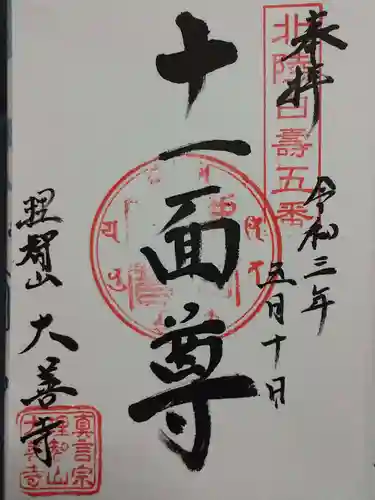 奉拝
北陸白寿五番
令和三年
五月十日
十一面尊
理智山
大善寺
真言宗
理智山
大善寺